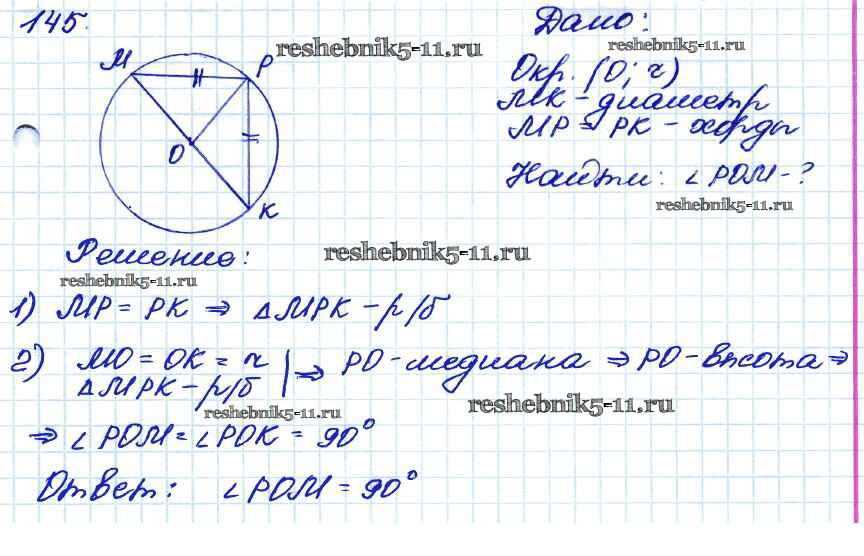 145.
Дано:
reshebnik5-11.ru
reshebnik5-11.ru
M
P
O
K
Окр. (O; r)
MK - диаметр
MP = PK - хорды
Найти: ∠POM - ?
reshebnik5-11.ru
Решение:
reshebnik5-11.ru
reshebnik5-11.ru
1) MP = PK ⇒ △MPK - р/б
2) MO = OK = r | ⇒ PO - медиана ⇒ PO - высота ⇒
△MPK - р/б
reshebnik5-11.ru
reshebnik5-11.ru
⇒ ∠POM = ∠POK = 90°
Ответ: ∠POM = 90°